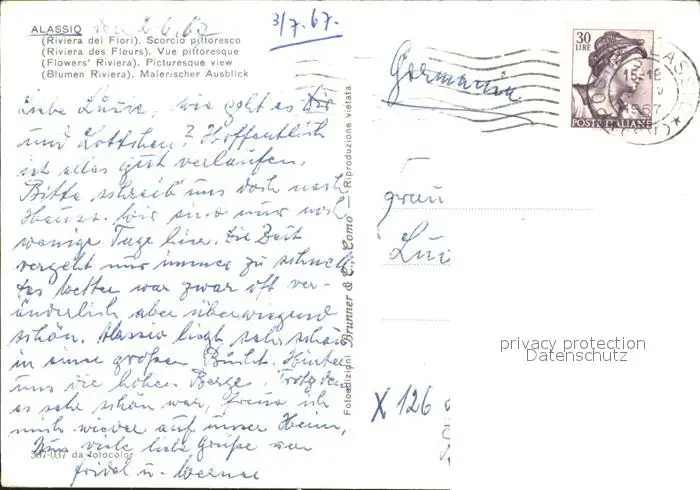 ALASSIO den 2.6.67
3/7.67.
(Riviera dei Fiori). Scorcio pittoresco
(Riviera des Fleurs). Vue pittoresque
(Flowers' Riviera). Picturesque view
(Blumen Riviera). Malerischer Ausblick
Liebe Luise, wie geht es Dir
und Lottchen? Hoffentlich
ist alles gut verlaufen.
Bitte schreib uns doch nach
Hause. Wir sind nur noch
wenige Tage hier. Die Zeit
vergeht nur immer zu schnell
Das Wetter war zwar oft ver-
änderlich aber überwiegend
schön. Alassio liegt sehr schön
in einer großen Bucht. Hinter
uns die hohen Berge. Trotzdem
es sehr schön war, freue ich
mich wieder auf unser Heim,
Nun viele liebe Grüße von
Fridel u. Werner
507-037 da fotocolor
Fotoedizioni Brunner & C., Como - Riproduzione vietata
Germania
30
LIRE
POSTE ITALIANE
15-18
1967
ALASSIO
Frau
Lui
X 126
privacy protection
Datenschutz